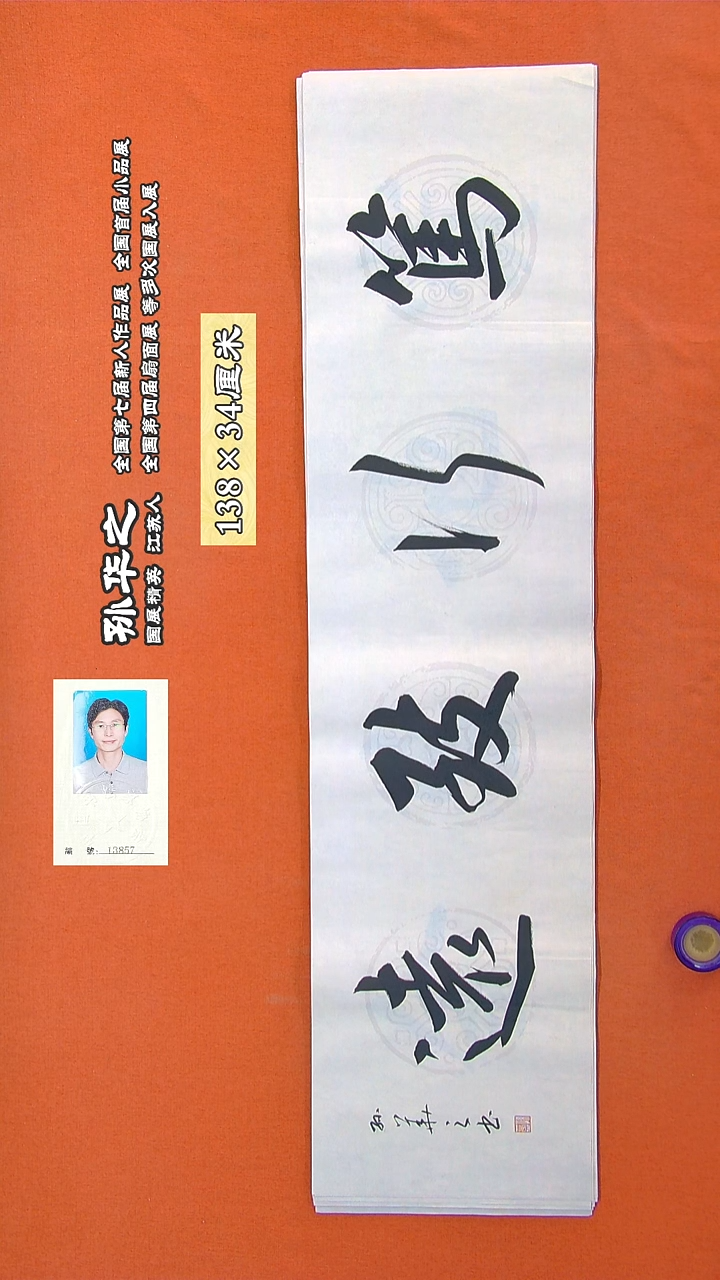 孙华之
国展精英 江苏人
全国第七届新人作品展 全国首届小品展
全国第四届扇面展 等多次国展入展
138×34厘米
編 號: 13857
篤行致遠
孙華之书